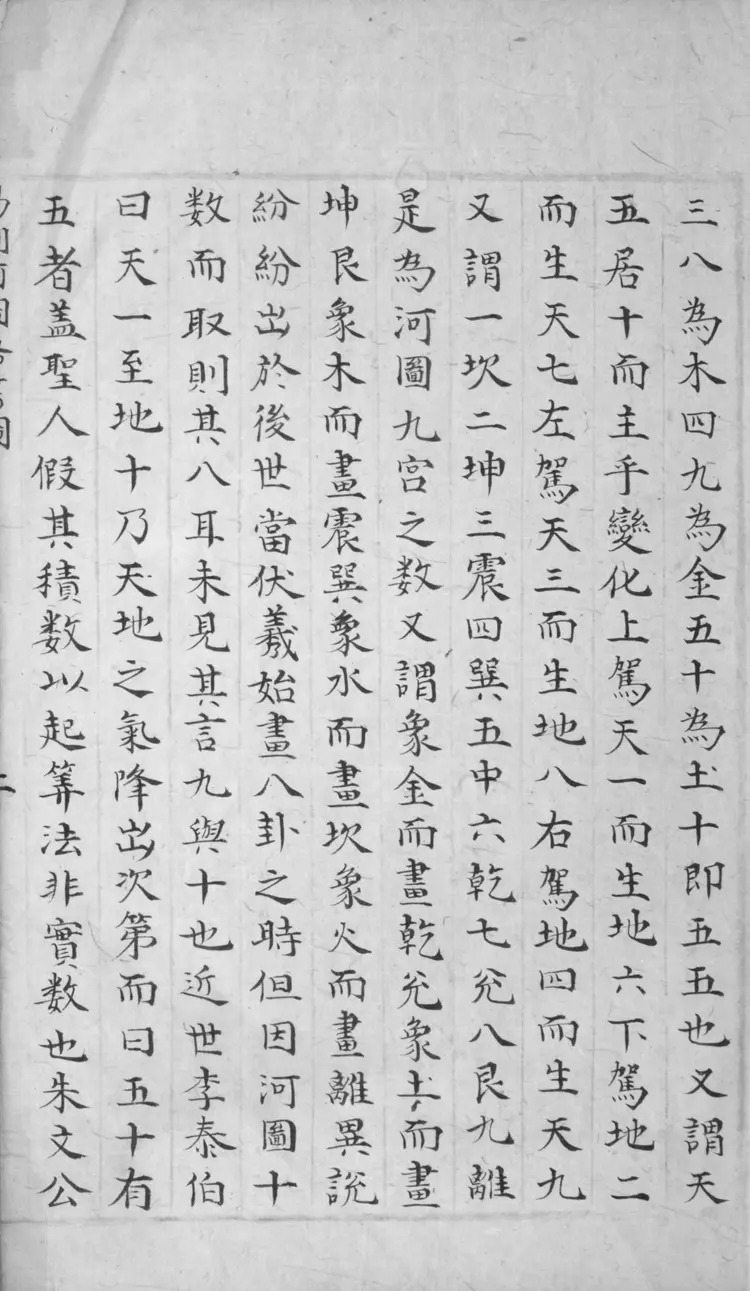 三八為木四九為金五十為土十即五五也又謂天
五居十而主乎變化上駕天一而生地六下駕地二
而生天七左駕天三而生地八右駕地四而生天九
又謂一坎二坤三震四巽五中六乾七兊八艮九離
是為河圖九宫之数又謂象金而畫乾兊象土而畫
坤艮象木而畫震巽象水而畫坎象火而畫離異說
紛紛出於後世當伏羲始畫八卦之時但因河圖十
数而取則其八耳未見其言九與十也近世李泰伯
曰天一至地十乃天地之氣降出次第而曰五十有
五者盖聖人假其積数以起筭法非實数也朱文公
二